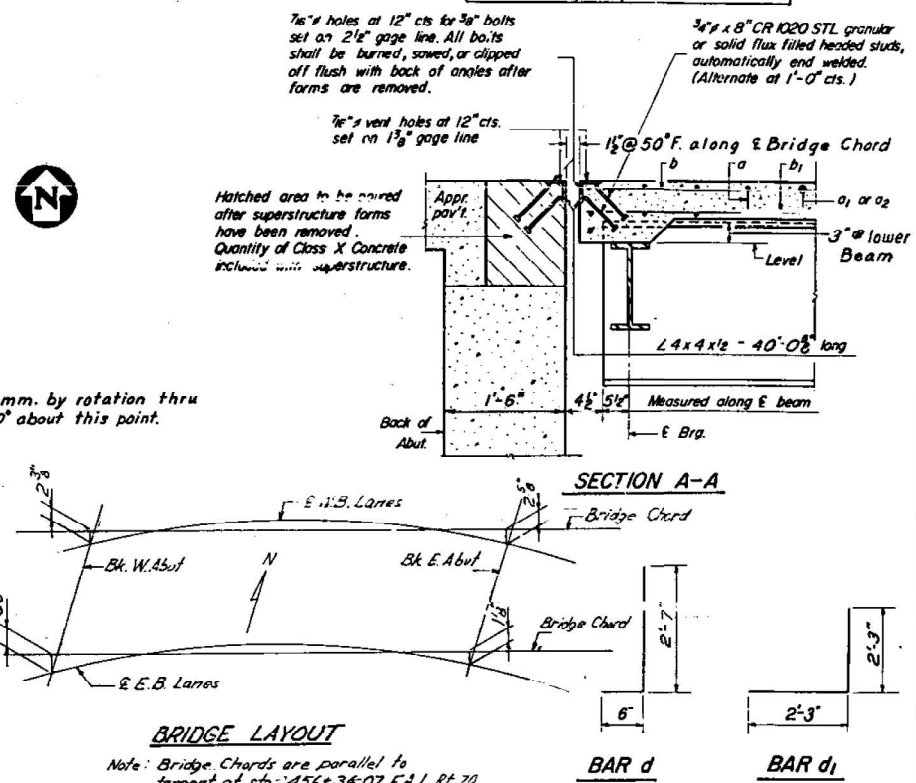 7/16"ø holes at 12" cts for 3/8" bolts
set on 2 1/2" gage line. All bolts
shall be burned, sawed, or clipped
off flush with back of angles after
forms are removed.
3/4"ø x 8" CR 1020 STL granular
or solid flux filled headed studs,
automatically end welded.
(Alternate at 1'-0" cts.)
7/16"ø vent holes at 12" cts.
set on 1 3/8" gage line
1 1/2" @ 50° F. along ℄ Bridge Chord
b
a
b1
N
Hatched area to be poured
after superstructure forms
have been removed.
Quantity of Class X Concrete
included with superstructure.
Appr.
pav't.
a1 or a2
3" @ lower
Beam
Level
L 4 x 4 x 1/2 - 40'-0 long
mm. by rotation thru
0° about this point.
1'-6"
4 1/2"
5 1/2"
Measured along ℄ beam
Back of
Abut.
℄ Brg.
SECTION A-A
2 3/8"
℄ N.B. Lanes
2 5/8"
Bridge Chord
Bk. W. Abut
N
Bk. E. Abut
Bridge Chord
℄ E.B. Lanes
2'-7"
2'-3"
6"
2'-3"
BRIDGE LAYOUT
BAR d
BAR d1
Note: Bridge Chords are parallel to
tangent at sta. 456+36.07 F.A.I. Rt. 70